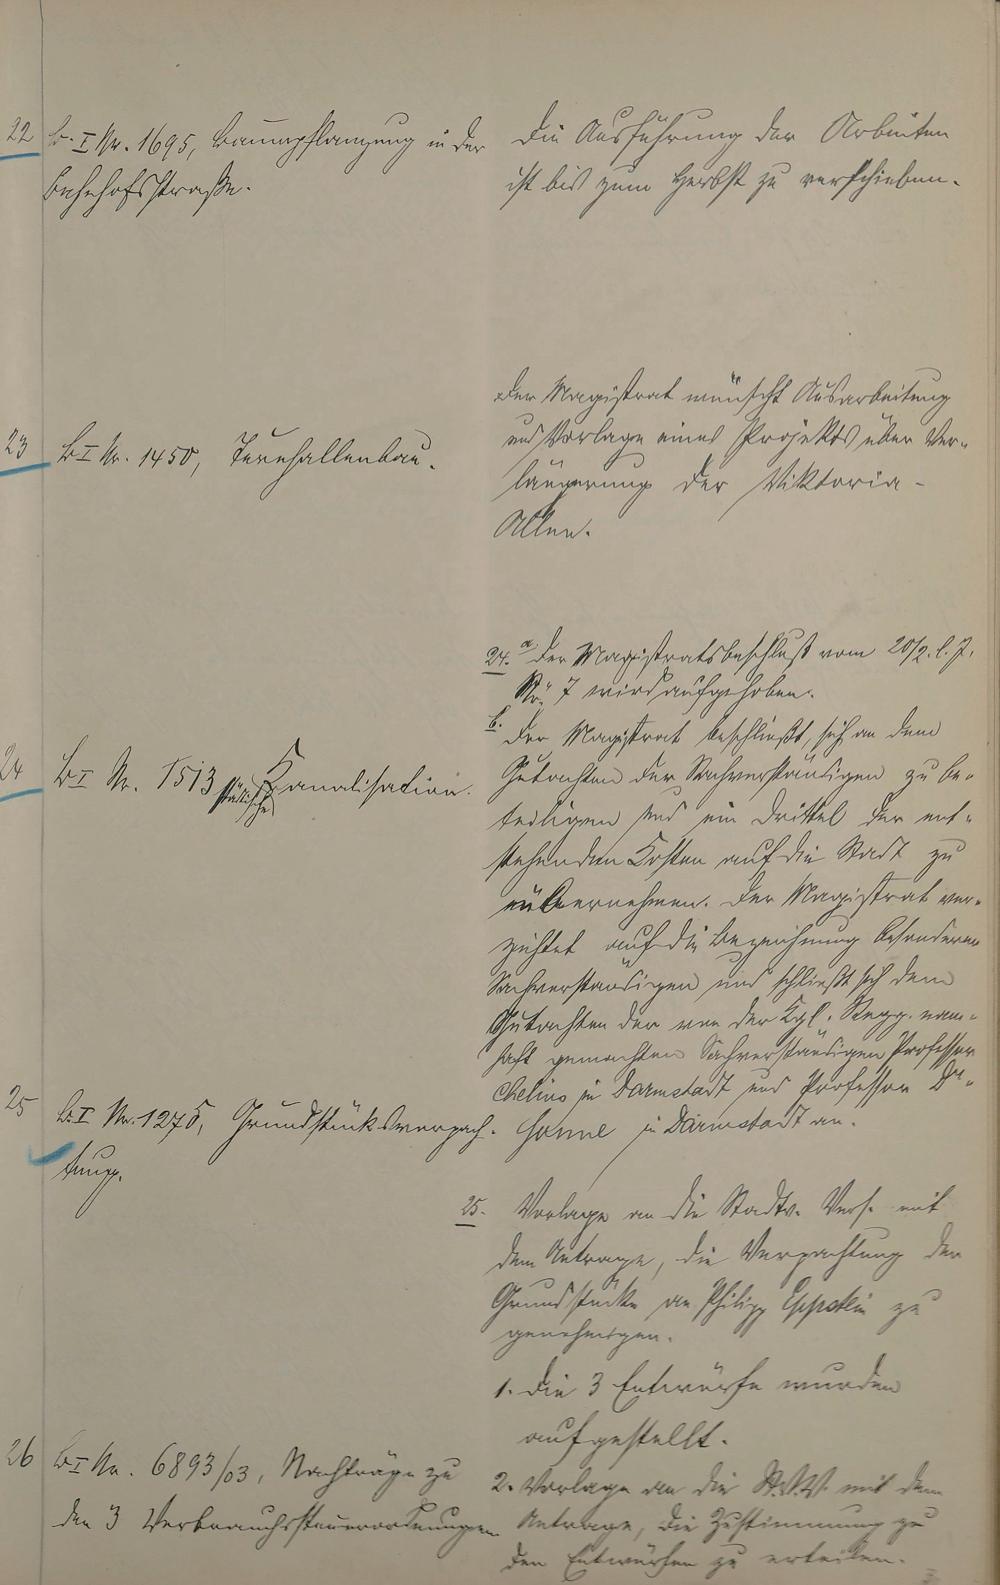 22 B. I Nr. 1695, Baumpflanzung in der
Bahnhofsstraße.
Die Ausführung der Arbeiten
ist bis zum Herbst zu verschieben.
23 B I Nr. 1450, Turnhallenbau.
Der Magistrat wünscht Ausarbeitung
und Vorlage eines Projekts über Ver-
längerung der Viktoria-
Allee.
24 B I Nr. 1513 städtische Kanalisation.
24. a Der Magistratsbeschluß vom 20/2. l. J.
Nr. 7 wird aufgehoben.
b. Der Magistrat beschließt, sich an dem
Gutachten der Sachverständigen zu be-
teiligen und ein Drittel der ent-
stehenden Kosten auf die Stadt zu
übernehmen. Der Magistrat ver-
zichtet auf die Bezeichnung besonderer
Sachverständigen und schließt sich dem
Gutachten der von der Kgl. Regg. nam-
haft gemachten Sachverständigen Professor
Chelius in Darmstadt und Professor Dr.
in Darmstadt an.
25 B. I Nr. 1275, Grundstücksverpach-
tung.
25. Vorlage an die Stadtv. Vers. mit
dem Antrage, die Verpachtung der
Grundstücke an Philipp Eppstein zu
genehmigen.
26 B I Nr. 6893/03, Nachträge zu
den 3 Verbrauchssteuerordnungen
1. Die 3 Entwürfe wurden
aufgestellt.
2. Vorlage an die St. V. V. mit dem
Antrage, die Zustimmung zu
den Entwürfen zu erteilen.